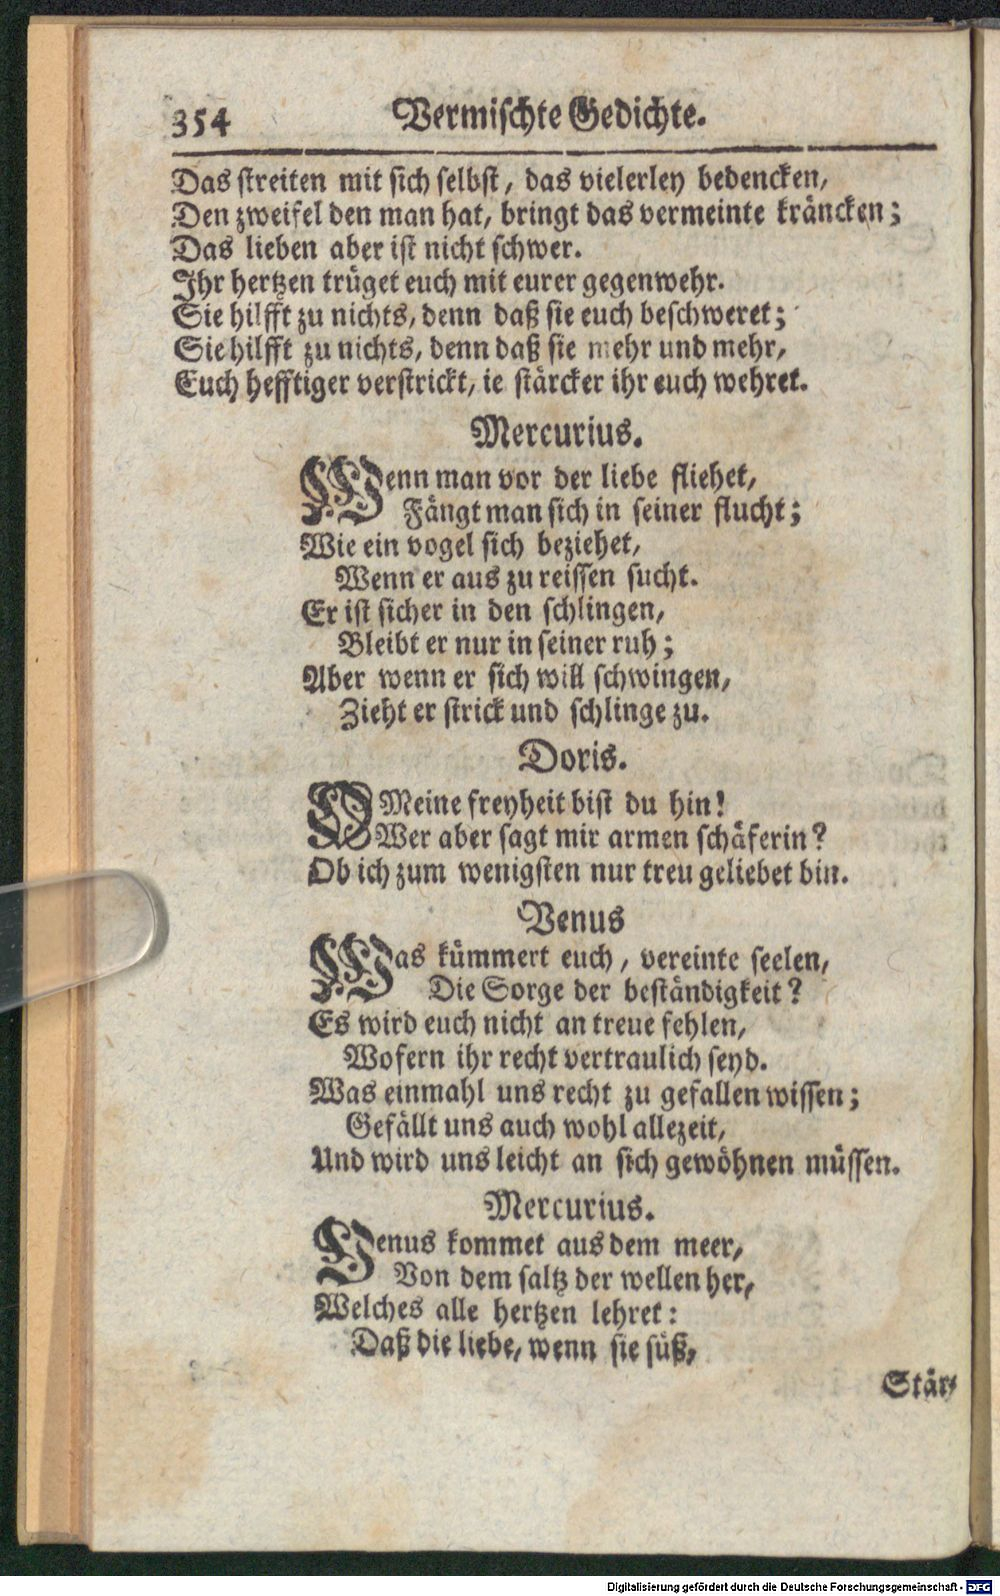 354 Vermischte Gedichte.
Das streiten mit sich selbst, das vielerley bedencken,
Den zweifel den man hat, bringt das vermeinte kräncken;
Das lieben aber ist nicht schwer.
Ihr hertzen trüget euch mit eurer gegenwehr.
Sie hilfft zu nichts, denn daß sie euch beschweret;
Sie hilfft zu nichts, denn daß sie mehr und mehr,
Euch hefftiger verstrickt, ie stärcker ihr euch wehret.
Mercurius.
Wenn man vor der liebe fliehet,
Fängt man sich in seiner flucht;
Wie ein vogel sich beziehet,
Wenn er aus zu reissen sucht.
Er ist sicher in den schlingen,
Bleibt er nur in seiner ruh;
Aber wenn er sich will schwingen,
Zieht er strick und schlinge zu.
Doris.
O Meine freyheit bist du hin!
Wer aber sagt mir armen schäferin?
Ob ich zum wenigsten nur treu geliebet bin.
Venus
Was kümmert euch, vereinte seelen,
Die Sorge der beständigkeit?
Es wird euch nicht an treue fehlen,
Wofern ihr recht vertraulich seyd.
Was einmahl uns recht zu gefallen wissen;
Gefällt uns auch wohl allezeit,
Und wird uns leicht an sich gewöhnen müssen.
Mercurius.
Venus kommet aus dem meer,
Von dem saltz der wellen her,
Welches alle hertzen lehret:
Daß die liebe, wenn sie süß,
Stär-
Digitalisierung gefördert durch die Deutsche Forschungsgemeinschaft - DFG